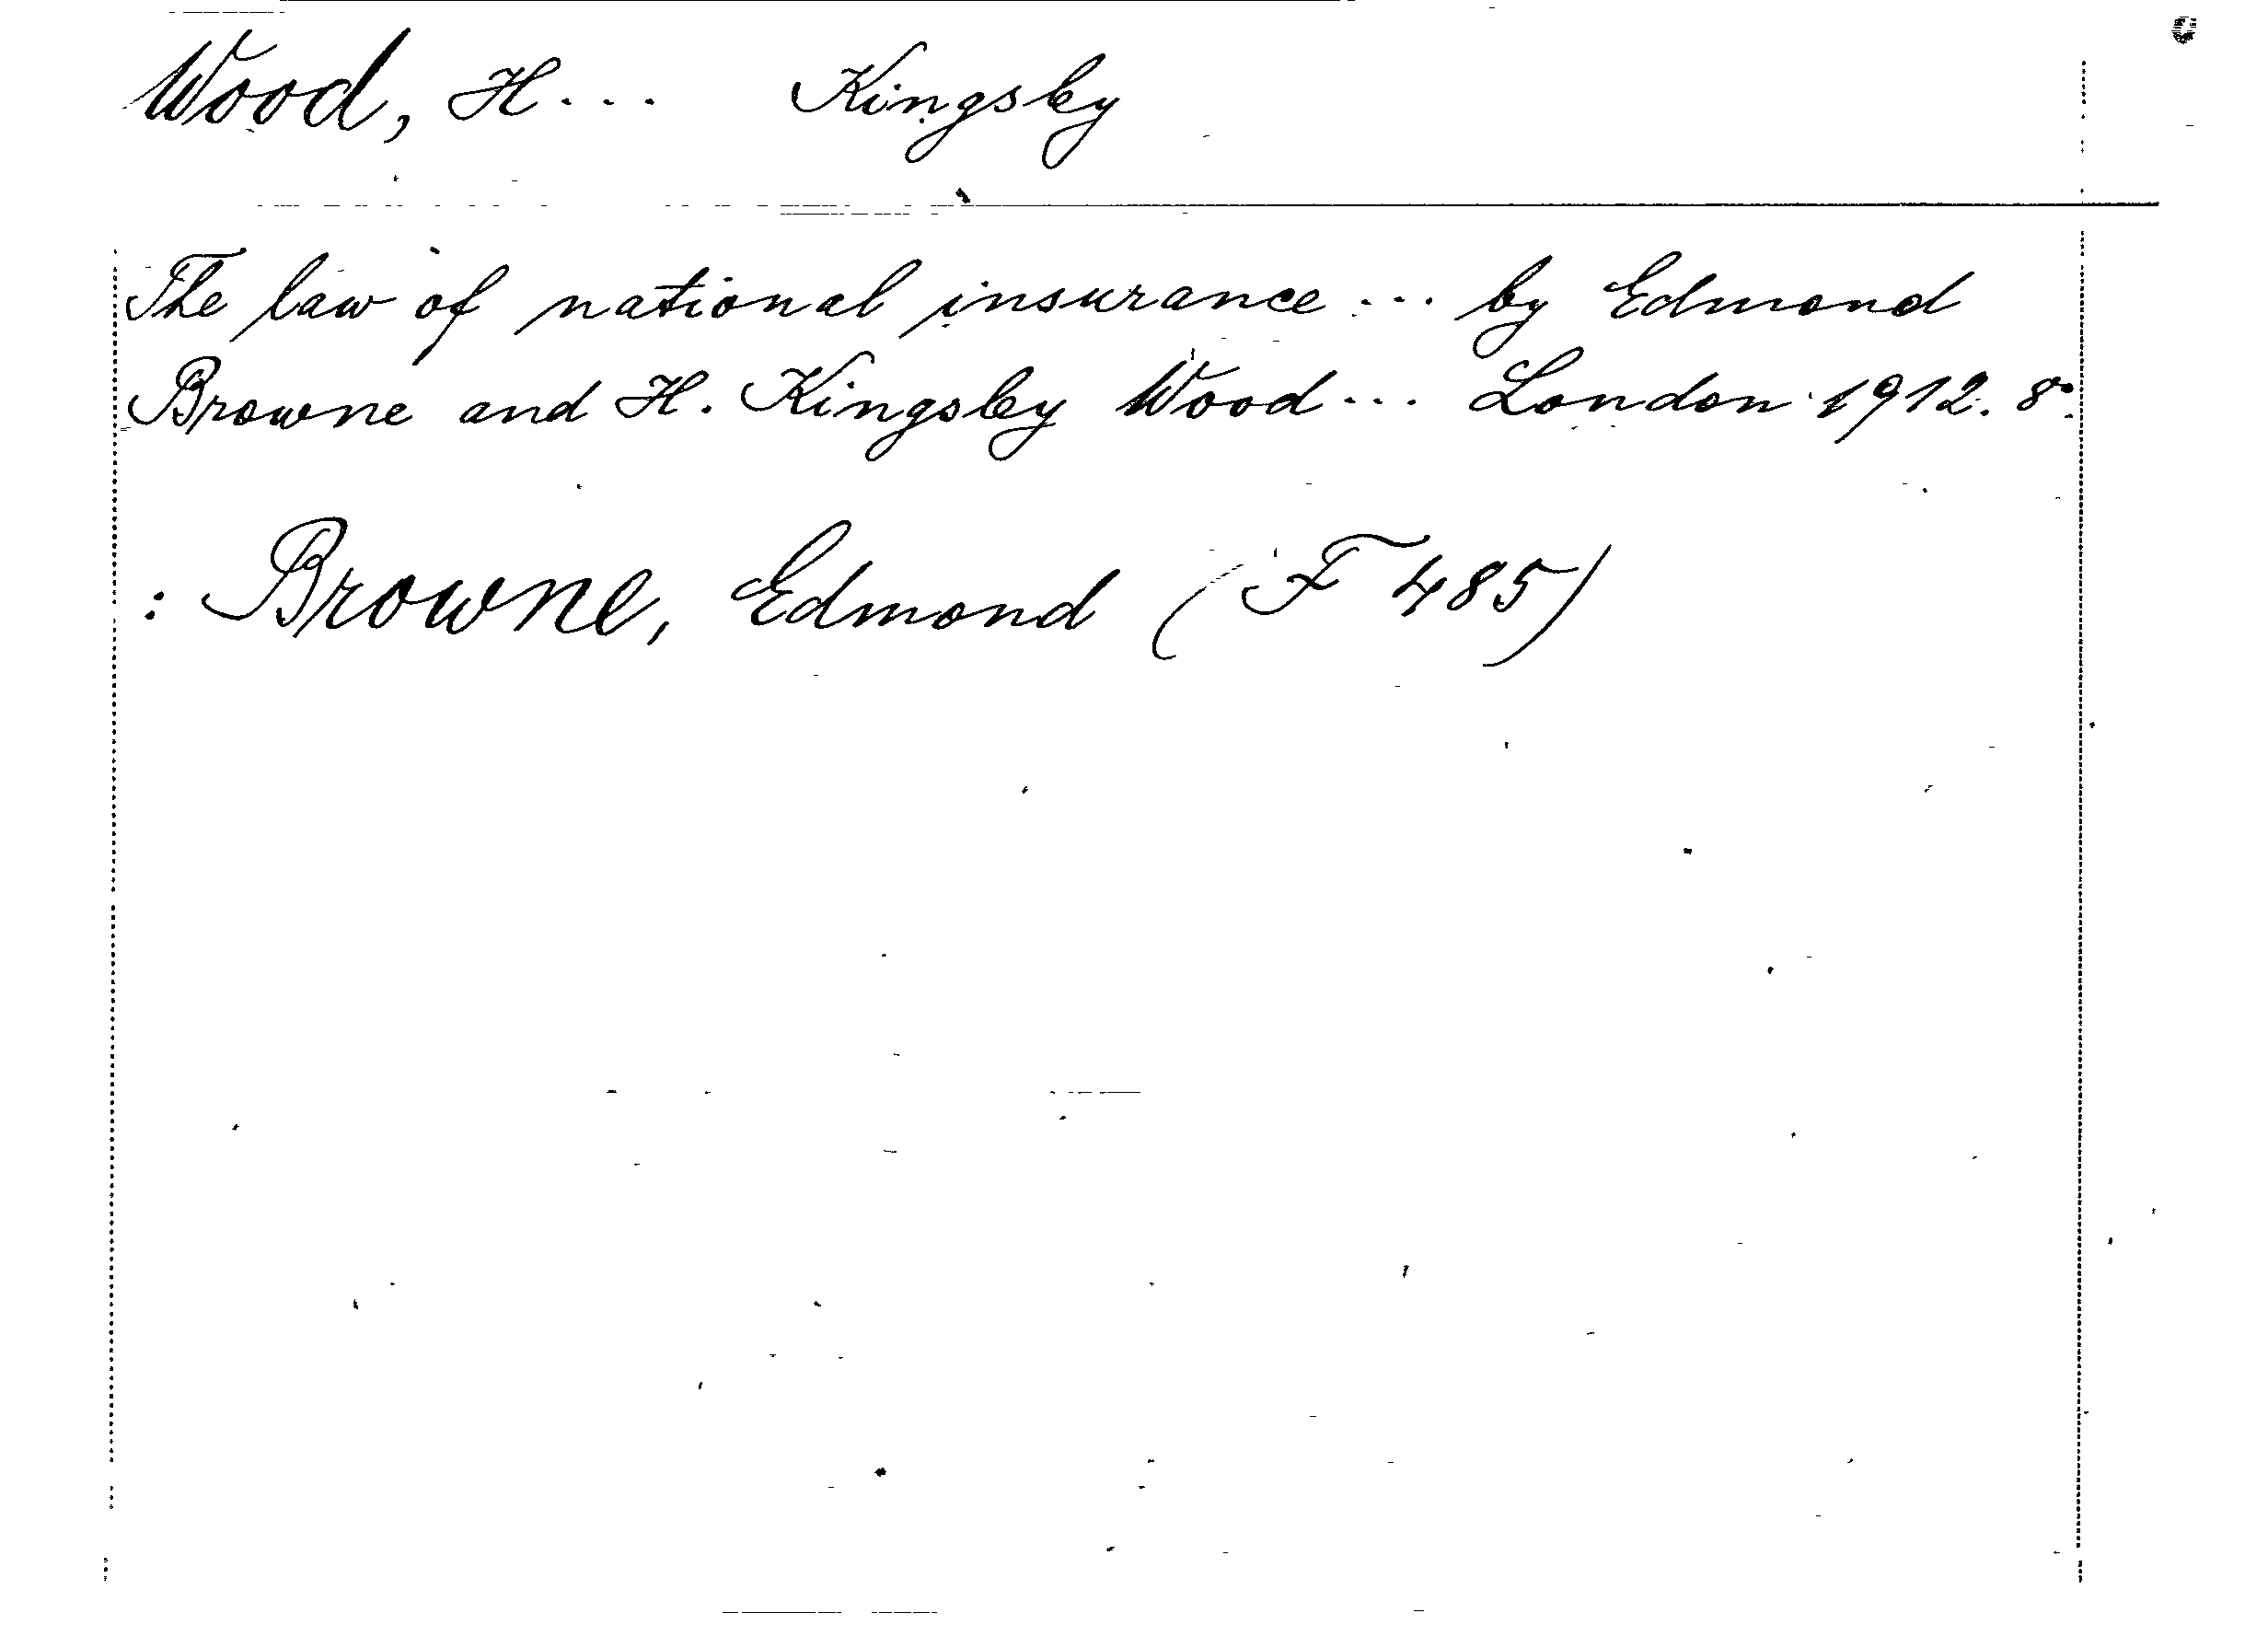 Wood, H... Kingsley
The law of national insurance... by Edmond
Browne and H. Kingsley Wood... London 1912. 8°.
: Browne, Edmond (F 485)